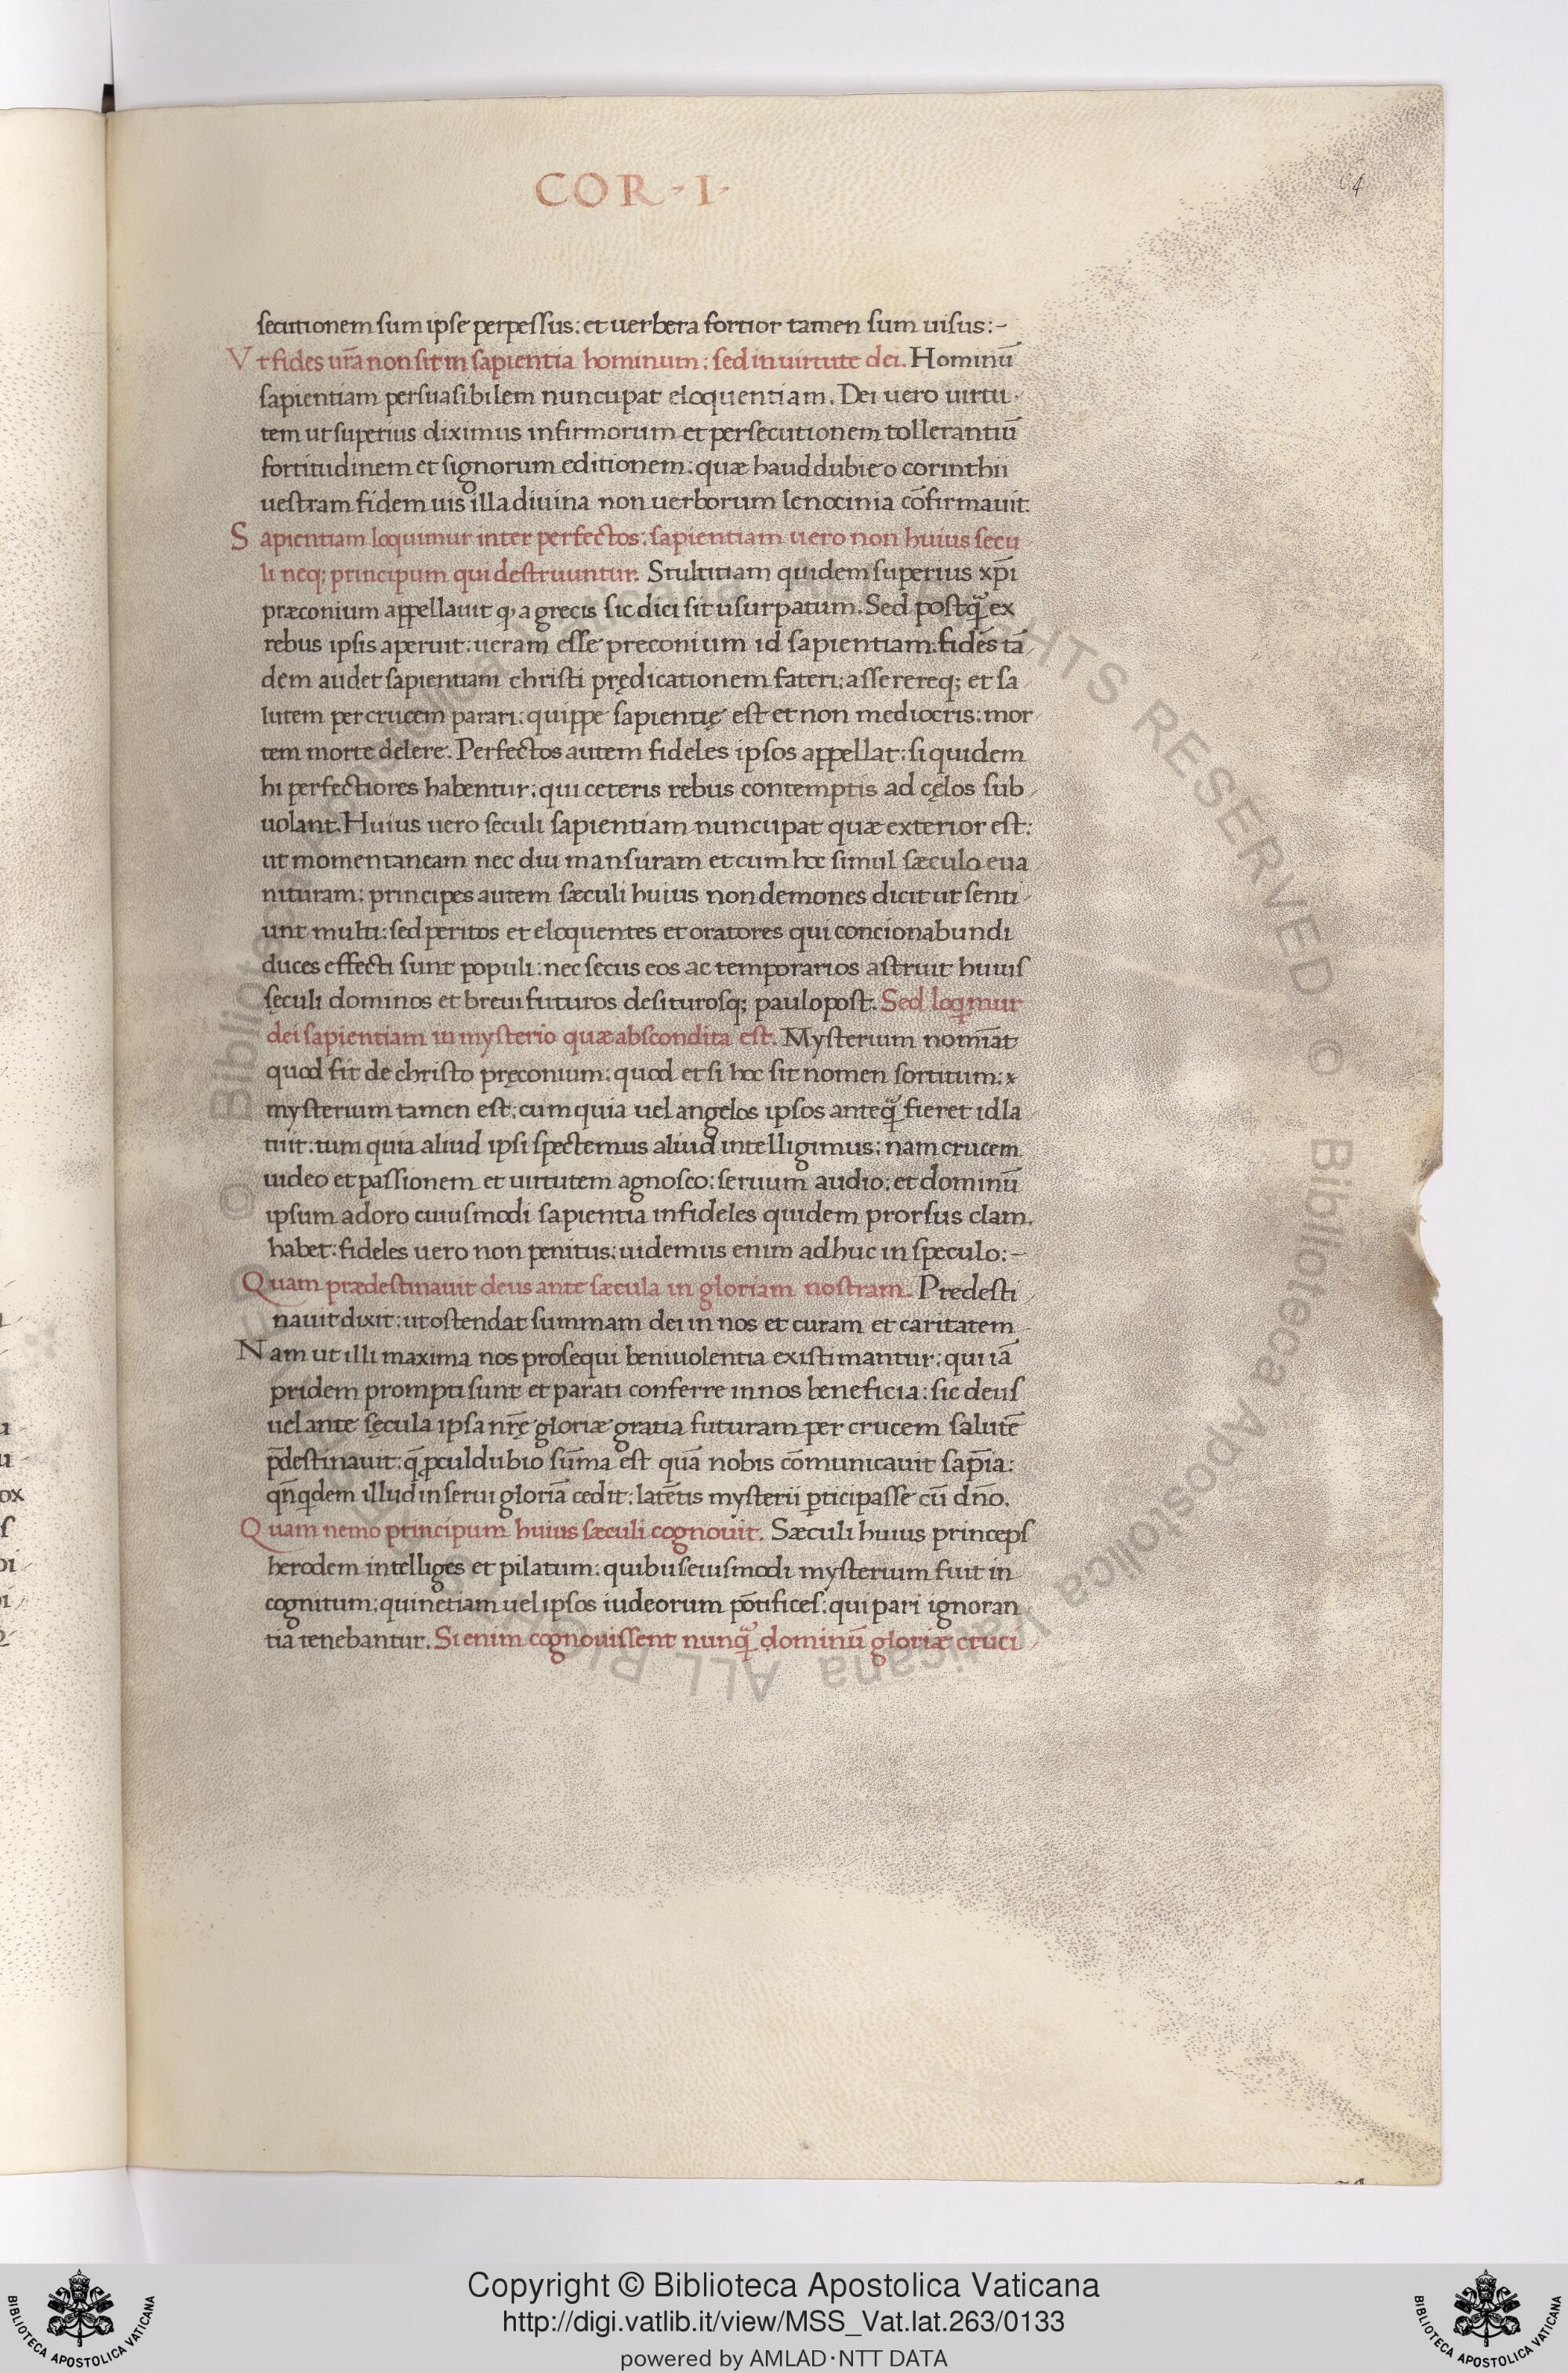 COR · I ·
64
secutionem sum ipse perpessus: et uerbera fortior tamen sum uisus:-
Vt fides ur̃a non sit in sapientia hominum: sed in uirtute dei. Hominũ
sapientiam persuasibilem nuncupat eloquentiam. Dei uero uirtu-
tem ut superius diximus infirmorum et persecutionem tollerantiũ
fortitudinem et signorum editionem: quæ haud dubie o corinthii
uestram fidem uis illa diuina non uerborum lenocinia cõfirmauit.
Sapientiam loquimur inter perfectos: sapientiam uero non huius secu
li neq; principum qui destruuntur. Stultitiam quidem superius xp̃i
præconium appellauit q, a grecis sic dici sit usurpatum. Sed postq̃ ex
rebus ipsis aperuit: ueram esse preconium id sapientiam: fidẽs tã
dem audet sapientiam christi prędicationem fateri; asserereq; et sa
lutem per crucem parari: quippe sapientię est et non mediocris: mor
tem morte delere. Perfectos autem fideles ipsos appellat: siquidem
hi perfectiores habentur: qui ceteris rebus contemptis ad cęlos sub
uolant. Huius uero seculi sapientiam nuncupat quæ exterior est:
ut momentaneam nec diu mansuram et cum hoc simul sæculo eua
nituram: principes autem sæculi huius non demones dicit ut senti
unt multi: sed peritos et eloquentes et oratores qui concionabundi
duces effecti sunt populi: nec secus eos ac temporarios astruit huius
sęculi dominos et breui futuros desiturosq; paulo post. Sed loq̃mur
dei sapientiam in mysterio quæ abscondita est. Mysterium nomĩat
quod fit de christo pręconium: quod et si hoc sit nomen sortitum:
mysterium tamen est: cum quia uel angelos ipsos anteq̃ fieret id la
tuit: tum quia aliud ipsi spectemus aliud intelligimus: nam crucem
uideo et passionem et uirtutem agnosco: seruum audio: et dominũ
ipsum adoro cuiusmodi sapientia infideles quidem prorsus clam.
habet: fideles uero non penitus: uidemus enim adhuc in speculo:-
Quam prædestinauit deus ante sæcula in gloriam nostram. Predesti
nauit dixit: ut ostendat summam dei in nos et curam et caritatem
Nam ut illi maxima nos prosequi beniuolentia existimantur: qui iã
pridem prompti sunt et parati conferre in nos beneficia: sic deus
uel ante sęcula ipsa nr̃ę gloriæ gratia futuram per crucem salutẽ
p̃destinauit: q̃ p̱culdubio sũma est quã nobis cõmunicauit sap̃ia:
qñqdem illud in serui gloriã cedit: latẽtis mysterii p̱ticipasse cũ dño.
Quam nemo principum huius sæculi cognouit. Sæculi huius princeps
herodem intelliges et pilatum: quibus eiusmodi mysterium fuit in
cognitum: quinetiam uel ipsos iudeorum põtifices: qui pari ignoran
tia tenebantur. Si enim cognouissent nunq̃ dominũ gloriæ cruci
© Biblioteca Apostolica Vaticana ALL RIGHTS RESERVED
Copyright © Biblioteca Apostolica Vaticana
http://digi.vatlib.it/view/MSS_Vat.lat.263/0133
powered by AMLAD·NTT DATA
BIBLIOTECA APOSTOLICA VATICANA
BIBLIOTECA APOSTOLICA VATICANA